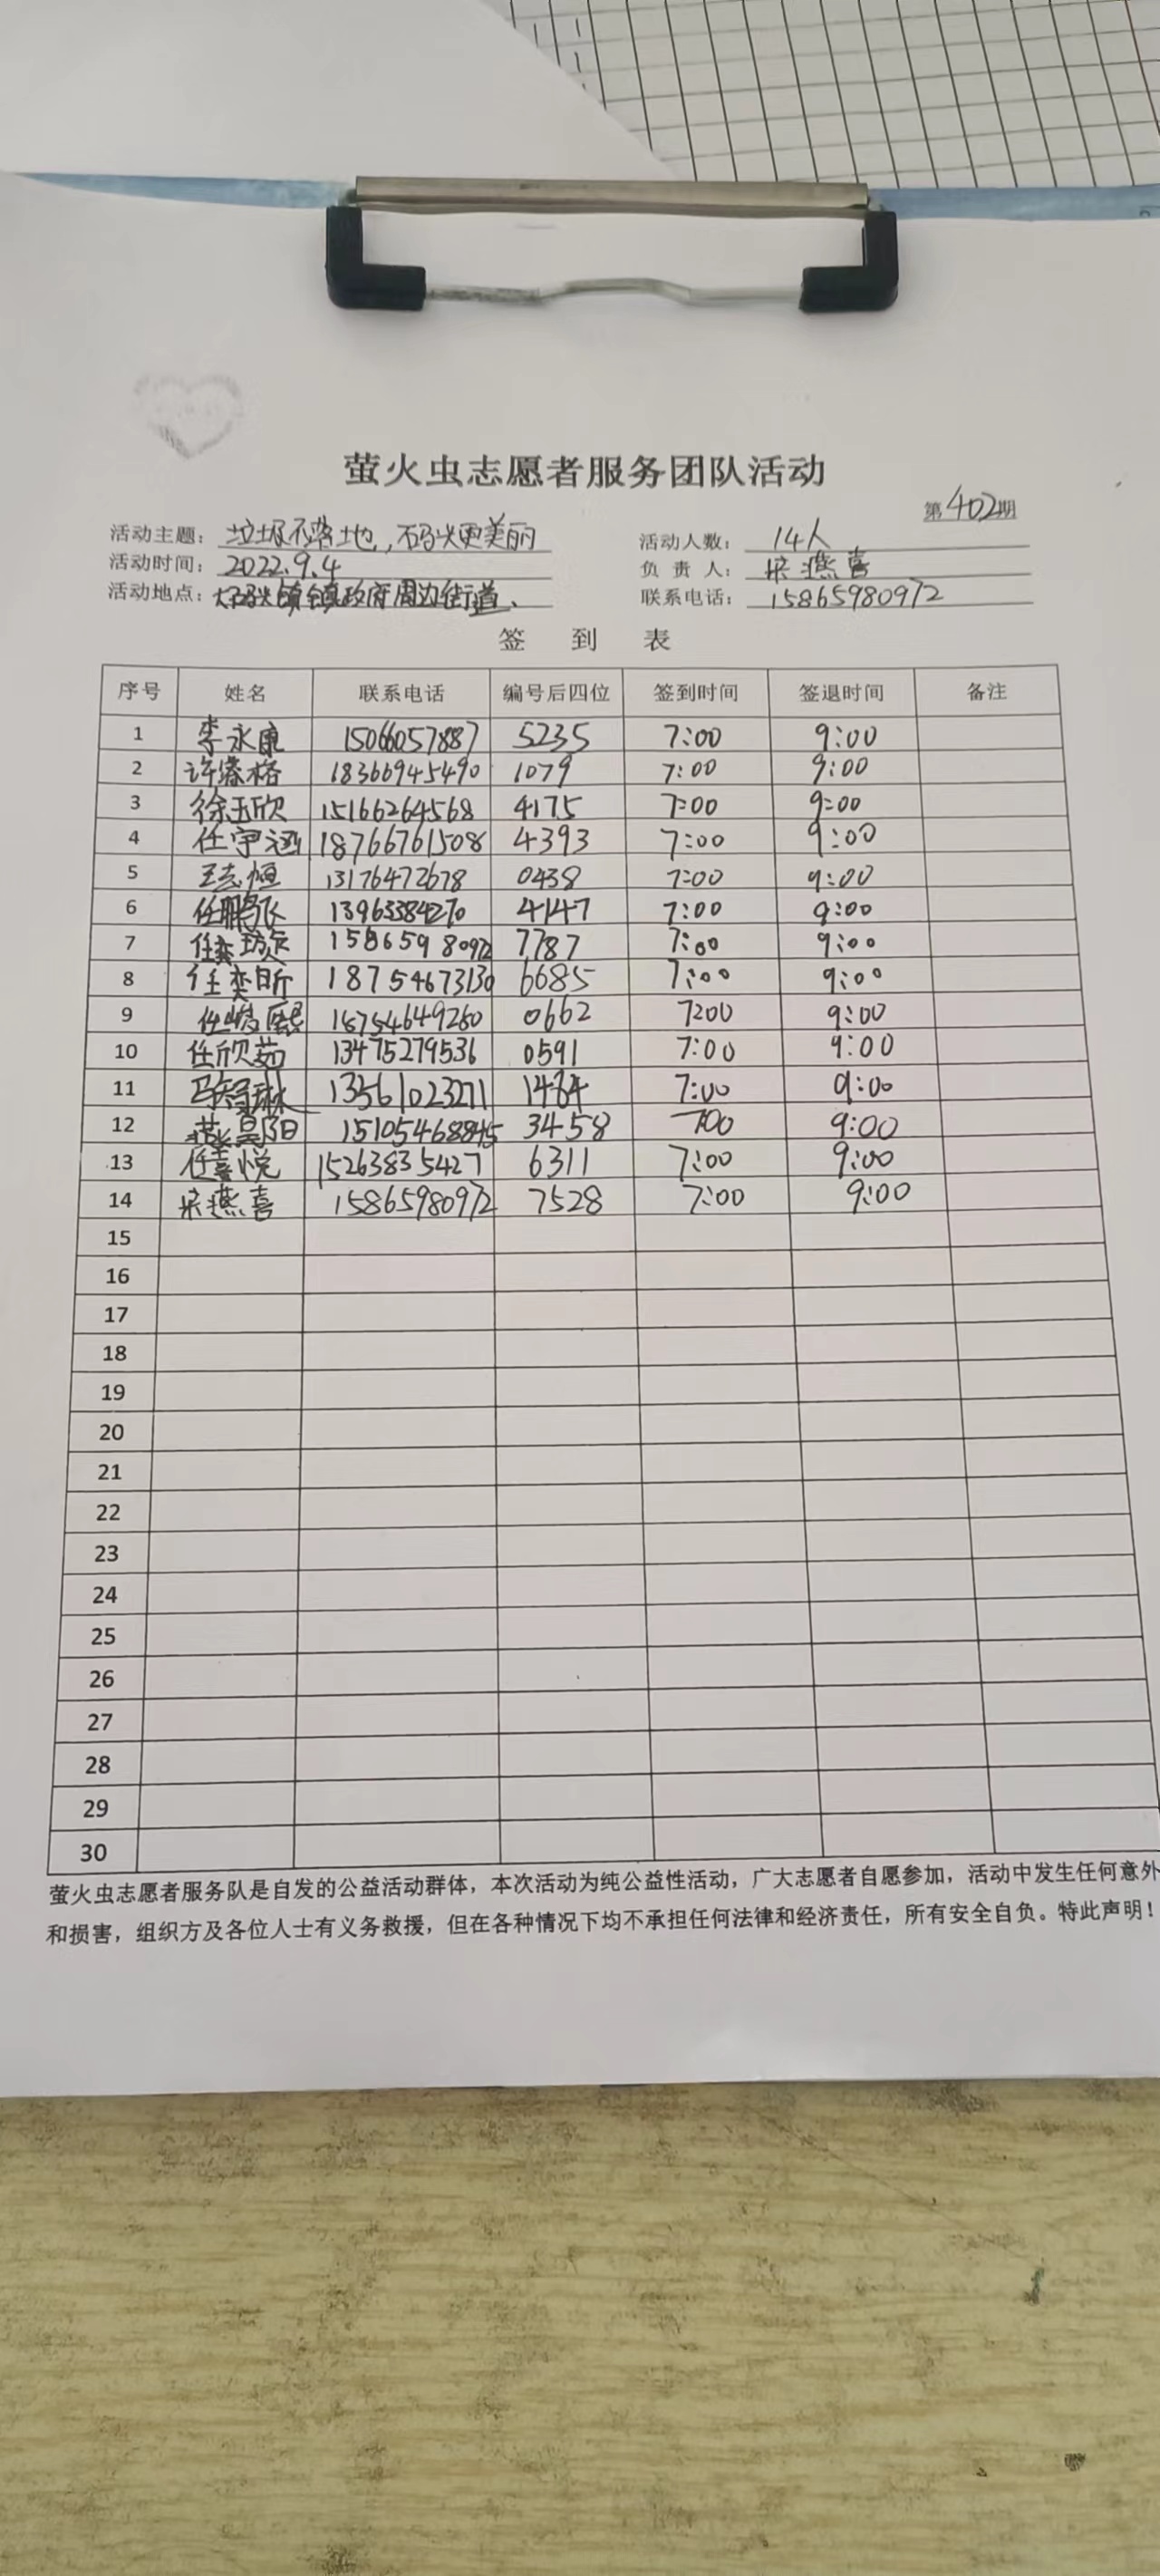 萤火虫志愿者服务团队活动
第402期
活动主题：垃圾不落地，石码头更美丽 活动人数：14人
活动时间：2022.9.4 负责人：燕喜
活动地点：石码头镇镇政府周边街道、 联系电话：15865980972
签到表
序号 姓名 联系电话 编号后四位 签到时间 签退时间 备注
1 李永康 15066057887 5235 7:00 9:00
2 许格 18366945490 1079 7:00 9:00
3 徐玉欣 15166264568 4175 7:00 9:00
4 任宇涵 18766761508 4393 7:00 9:00
5 王志恒 13176472678 0438 7:00 9:00
6 任鹏飞 13963384270 4147 7:00 9:00
7 任奕 15865980972 7787 7:00 9:00
8 任奕昕 18754673130 6685 7:00 9:00
9 任峻熙 18754649260 0662 7:00 9:00
10 任欣茹 13475279536 0591 7:00 9:00
11 琳 13561023271 1464 7:00 9:00
12 燕昊阳 15105468845 3458 700 9:00
13 任喜悦 15263835427 6311 7:00 9:00
14 燕喜 15865980972 7528 7:00 9:00
15
16
17
18
19
20
21
22
23
24
25
26
27
28
29
30
萤火虫志愿者服务队是自发的公益活动群体，本次活动为纯公益性活动，广大志愿者自愿参加，活动中发生任何意外
和损害，组织方及各位人士有义务救援，但在各种情况下均不承担任何法律和经济责任，所有安全自负。特此声明！